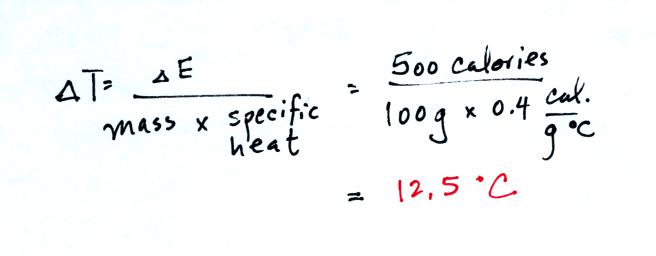 ΔT = ΔE / mass x specific heat = 500 calories / 100g x 0.4 cal. / g °C
= 12.5 °C